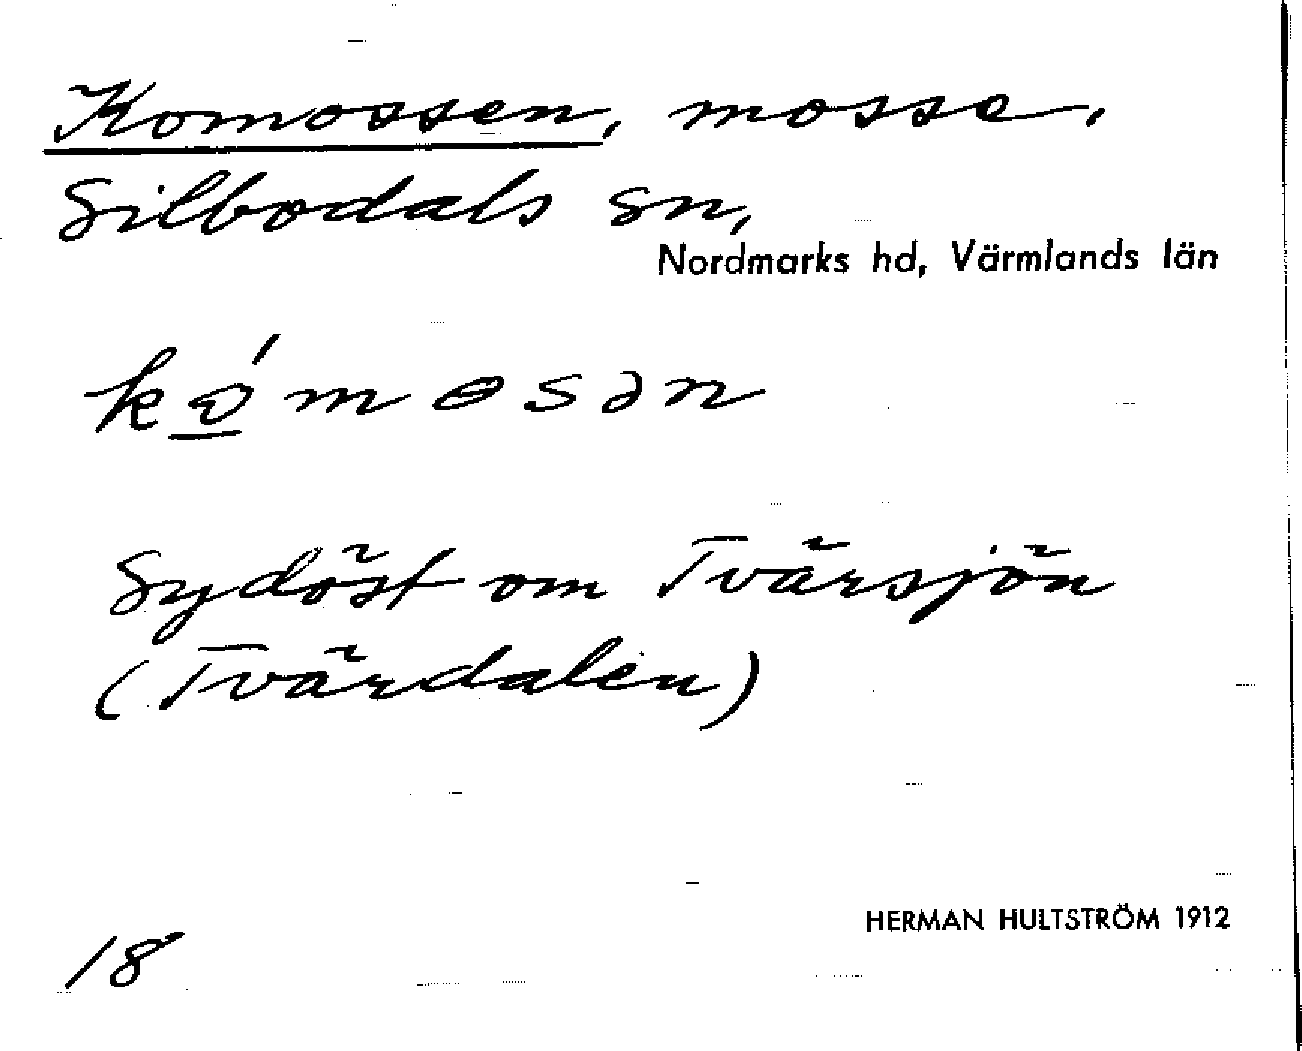 Komossen, mosse,
Silbodals sn,
Nordmarks hd, Värmlands län
kó̲mɵsən
Sydöst om Tvärsjön
(Tvärdalen)
HERMAN HULTSTRÖM 1912
18